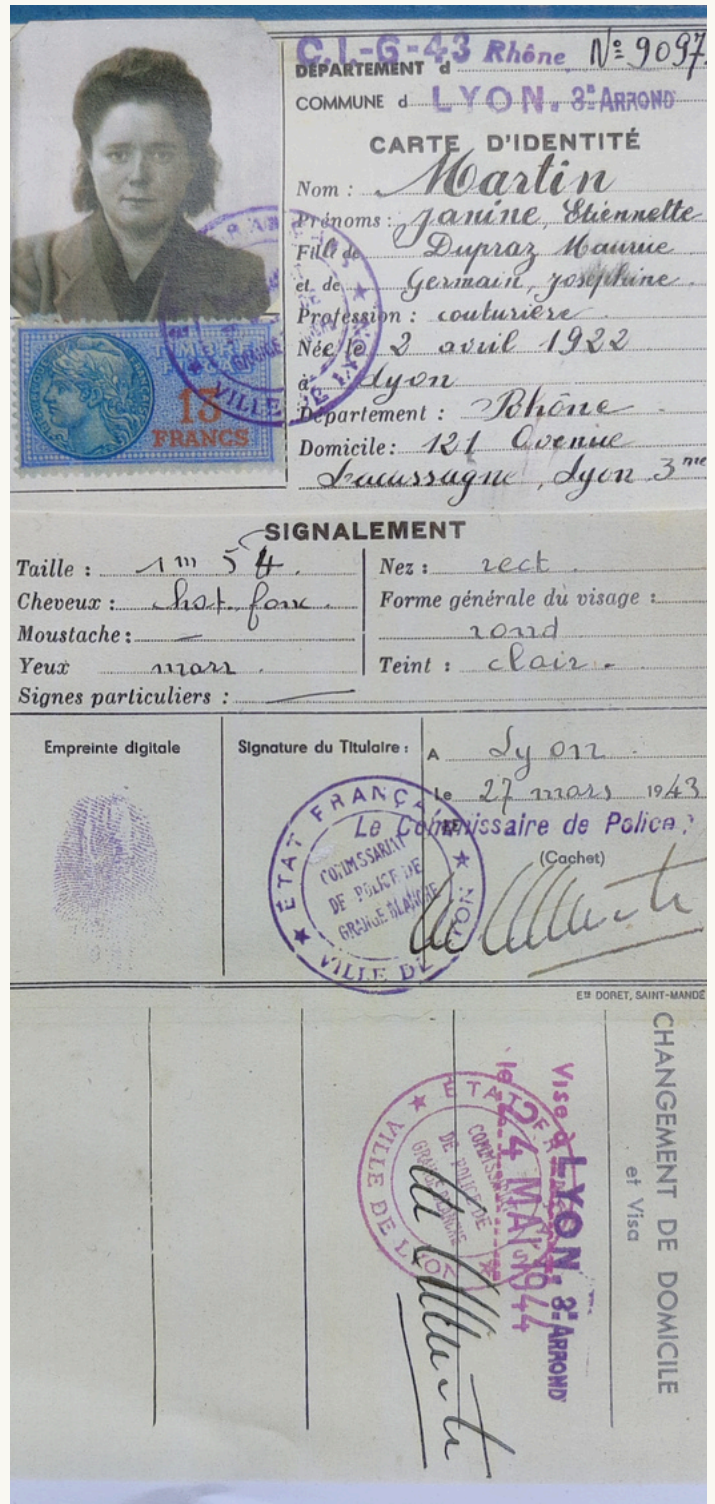 C.I-G-43 Rhône Nº 9097
DÉPARTEMENT d
COMMUNE d LYON. 3E ARROND
CARTE D'IDENTITÉ
Nom : Martin
Prénoms : Janine, Etiennette
Fille de Dupraz Maurice
et de Germain, Joséphine
Profession : couturière
Née le 2 avril 1922
à Lyon
Département : Rhône
Domicile : 121 Avenue
Lacassagne, Lyon 3me
13
FRANCS
SIGNALEMENT
Taille : 1m 54.
Nez : rect
Cheveux : chat. fonc
Forme générale du visage :
rond
Moustache : —
Yeux marr
Teint : clair
Signes particuliers : —
Empreinte digitale
Signature du Titulaire :
A Lyon
le 27 mars 1943
Le Commissaire de Police :
(Cachet)
ÉTAT FRANÇAIS
COMMISSARIAT
DE POLICE DE
GRANGE BLANCHE
VILLE DE LYON
Ets DORET, SAINT-MANDÉ
CHANGEMENT DE DOMICILE
et Visa
Visé à LYON. 3E ARROND
le 24 MAI 1944
ÉTAT FRANÇAIS
COMMISSARIAT
DE POLICE DE
GRANGE BLANCHE
VILLE DE LYON